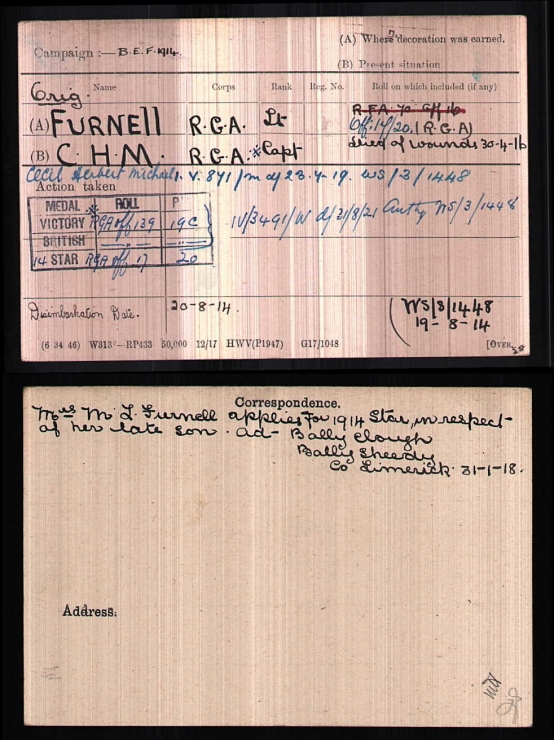 Campaign :— B.E.F. 1914.
(A) Where decoration was earned.
(B) Present situation
Orig.
Name Corps Rank Reg. No. Roll on which included (if any)
(A) FURNEll R.G.A. Lt
R.F.A. 70 Off 16
Off: 17/20. (R.G.A)
(B) C. H. M. R.G.A. *Capt died of wounds 30-4-16
Cecil Herbert Michael. 1. V. 891/m df 23.4.19. WS/3/1448
Action taken
MEDAL ROLL P
VICTORY RGA off 139 19C
BRITISH —„— —„—
14 STAR RGA off 17 20
IV/3491/W d/31/8/21 Authy WS/3/1448
Disembarkation Date. 20-8-14.
WS/3/1448
19-8-14
(6 34 46) W313—RP433 50,000 12/17 HWV(P1947) G17/1048 [OVER.
Correspondence.
Mrs M. L. Furnell applies for 1914 Star, in respect
of her late son. ad- Bally clough
Bally Sheedy
Co Limerick 31-1-18.
Address.